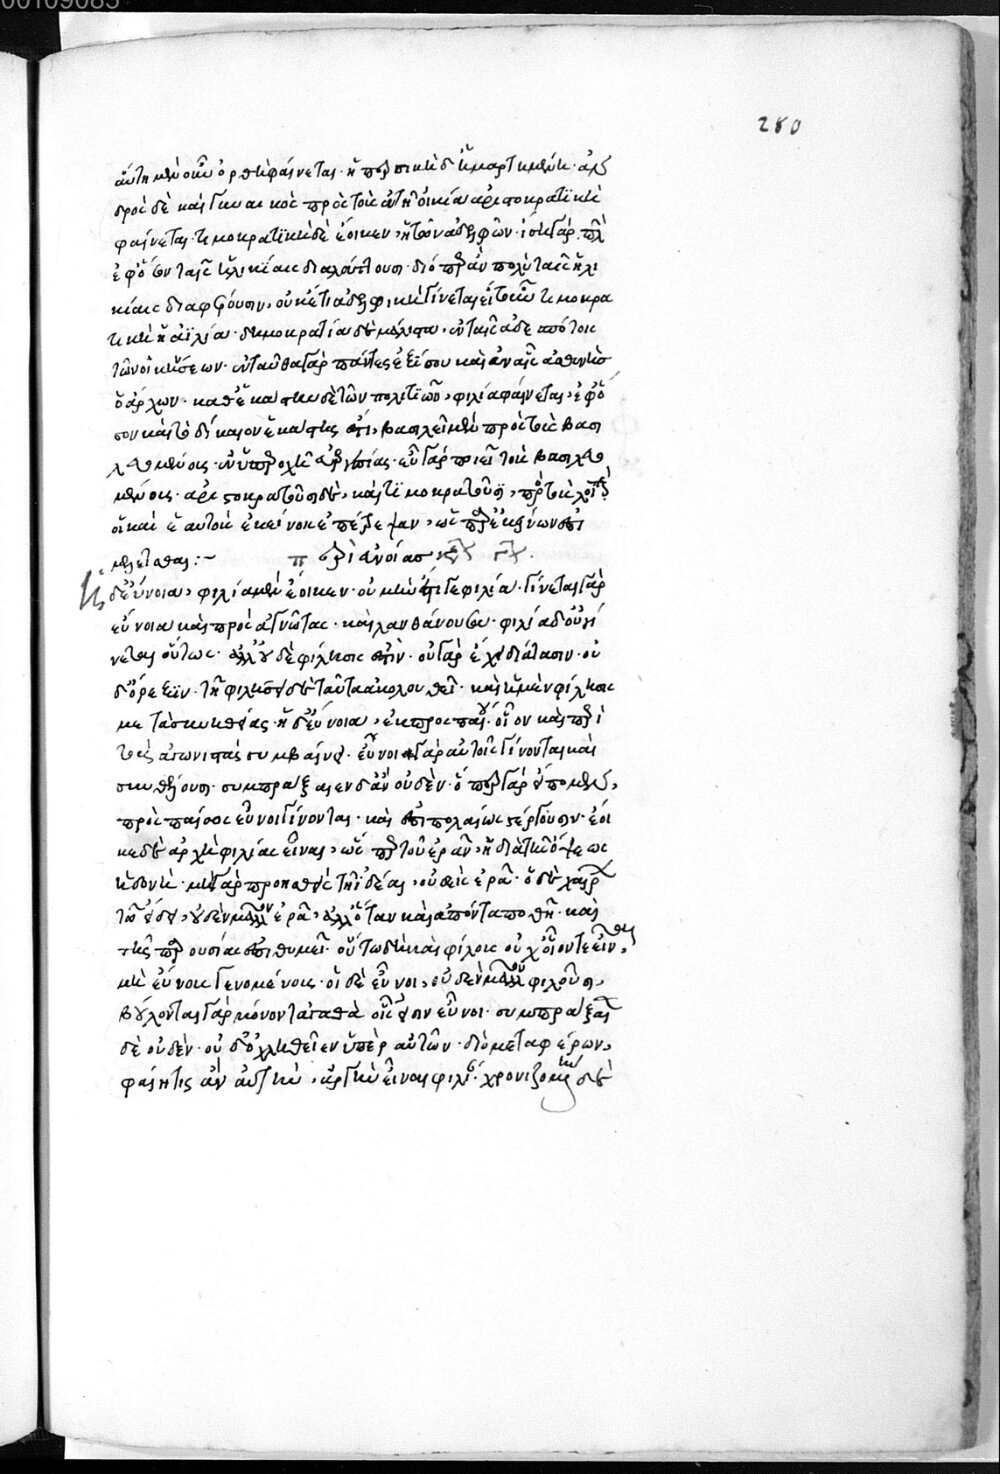 00109085
280
αὕτη μὲν οὖν ὀρθὴ φαίνεται· ἡ περσικὴ δ' ἡμαρτημένη· ἀν
δρὸς δὲ καὶ γυναικὸς πρὸς τοῖς ἐν τῇ οἰκία ἀριστοκρατικὴ
φαίνεται· τιμοκρατικῆ δὲ ἔοικεν, ἡ τῶν ἀδελφῶν· ἴσοι γὰρ πλὴν
ἐφ' ὅσον ταῖς ἡλικίαις διαλλάττουσι· διόπερ ἂν πολὺ ταῖς ἡλι
κίαις διαφέρουσιν, οὐκέτι ἀδελφικὴ γίνεται
τῶν οἰκήσεων· ἐνταῦθα γὰρ πάντες ἐξίσου καὶ ἐν αἷς ἀσθενὴς
ὁ ἄρχων· καθ' ἑκάστην δὲ τῶν πολιτειῶν, φιλία φαίνεται, ἐφ' ὅ
σον καὶ τὸ δίκαιον ἑκάστης ἐστί, βασιλεῖ μὲν πρὸς τοὺς βασι
λευομένους· ἐν ὑπεροχῇ εὐεργεσίας· εὖ γὰρ ποιεῖ τοὺς βασιλευο
μένους·
μελεῖσθαι:~ περὶ εὐνοίας
ἡ δ' εὔνοια, φιλία μὲν ἔοικεν· οὐ μὴν ἐστί γε φιλία· γίνεται γὰρ
εὔνοια καὶ πρὸς ἀγνῶτας· καὶ λανθάνουσα· φιλία δ' οὐ γί
νεται οὕτως· ἀλλ' οὐδὲ φίλησις ἐστίν· οὐ γὰρ ἔχει διάτασιν· οὐ
δ' ὄρεξιν· τῇ φιλήσει δὲ ταῦτα ἀκολουθεῖ· καὶ ἡ μὲν φίλησις
μετὰ συνηθείας· ἡ δ' εὔνοια, ἐκ προσπαίου· οἷον καὶ περὶ
τοὺς ἀγωνιστὰς συμβαίνει· εὖνοι γὰρ αὐτοῖς γίνονται καὶ
συνθέλουσι· συμπράξαιεν δ' ἂν οὐδὲν· ὅπερ γὰρ εἴπομεν,
προσπαίως εὖνοι γίνονται· καὶ ἐπιπολαίως στέργουσιν· ἔοι
κε δὲ ἀρχὴ φιλίας εἶναι, ὥσπερ τοῦ ἐρᾶν, ἡ διὰ τῆς ὄψεως
ἡδονή· μὴ γὰρ προησθεὶς τῇ ἰδέᾳ, οὐθεὶς ἐρᾷ· ὁ δὲ χαίρων
τῷ εἴδει, οὐδὲν μᾶλλον ἐρᾷ, ἀλλ' ὅταν καὶ ἀπόντα ποθῇ· καὶ
τῆς παρουσίας ἐπιθυμεῖ· οὕτω δὴ καὶ φίλους οὐχ οἷόντε εἶναι,
μὴ εὔνους γενομένους· οἱ δὲ εὖνοι, οὐδὲν μᾶλλον φιλοῦσι,
βούλονται γὰρ μόνον τἀγαθὰ οἷς εἰσιν εὖνοι· συμπράξαι
δὲ οὐδὲν· οὐδ' ὀχληθεῖεν ὑπὲρ αὐτῶν· διὸ μεταφέρων,
φαίη τις ἂν αὐτὴν, ἀργὴν εἶναι φιλίαν· χρονιζομένην δὲ